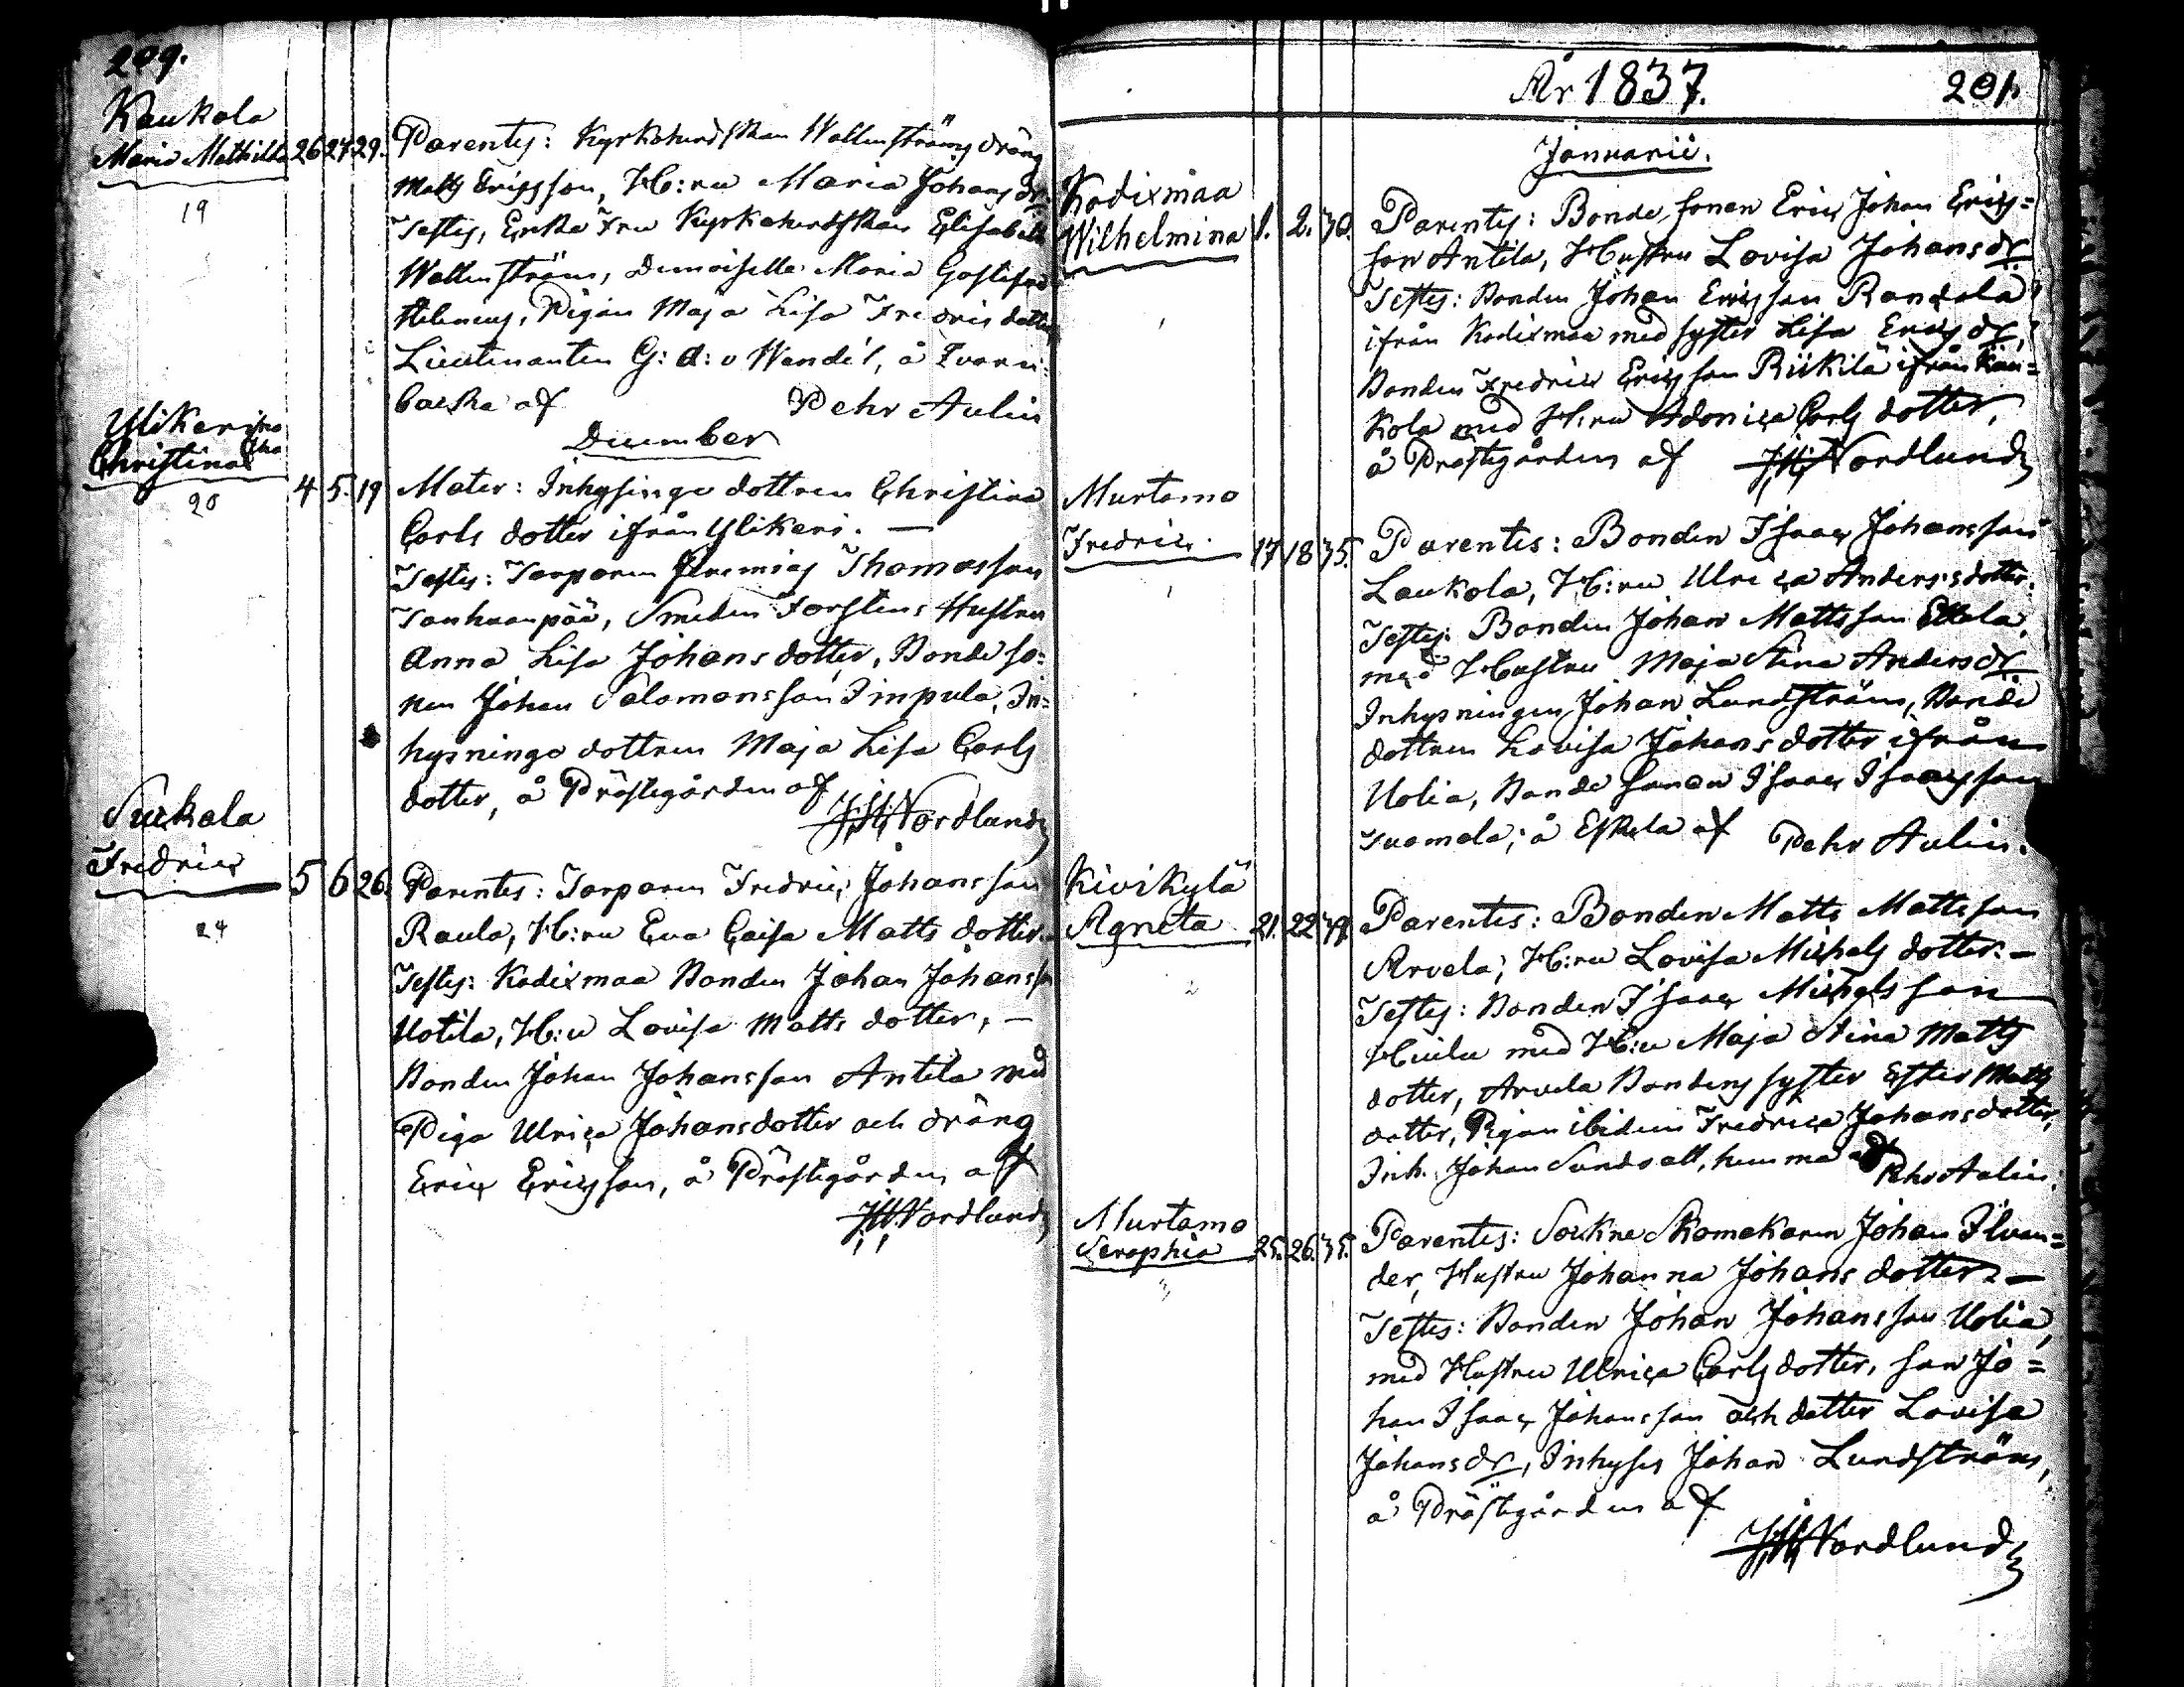 209.
Kaukola
Maria Mathilda 26 27 29.
19
Parentes: Kyrkoherdskan Wallenströms dräng
Matts Ericsson, H:ru Maria Johans dr
Testes, Enke Fru Kyrkoherdskan Elisabeth
Wallenström, Demoiselle Maria
Pigan Maja Lisa Fredrics dotter
Lieutenanten G: A: v Wendel, å Tvaru:
backa af Pehr Aulin
December
Ylikeri
Christina 4 5. 19
20
Mater: Inhysinge dottren Christina
Carls dotter ifrån Ylikeri. —
Testes: Torparen Jeremias Thomasson
Tanhuanpää, Smeden Forstens Hustru
Anna Lisa Johans dotter, Bonde so=
nen Johan Salomonsson Timpula, In=
hysninge dottren Maja Lisa Carls
dotter, å Prästegården af
JH Nordlund
Suckala
Fredric 5 6 26.
24
Parentes: Torparen Fredric Johansson
Raula, H:ru Eva Caisa Matts dotter.
Testes: Kodixmaa Bonden Johan Johansson
Uotila, H:u Lovisa Matts dotter, —
Bonden Johan Johansson Antila med
Piga Ulrica Johansdotter och dräng
Eric Ericsson, å Prästegården af
JH Nordlund
År 1837. 201.
Januarii.
Kodixmaa
Wilhelmina 1. 2. 30.
Parentes: Bonde sonen Eric Johan Erics=
son Antila, Hustru Lovisa Johans dr
Testes: Bonden Johan Ericsson Randala
ifrån Kodixmaa med syster Lisa Erics dr,
Bonden Fredric Ericsson Riikilä ifrån Kau=
kola med H:ru Adonica Carls dotter,
å Prästegården af JH Nordlund
Murtamo
Fredric. 17 18 35.
Parentes: Bonden Isaac Johansson
Laukola, H:ru Ulrica Anders dotter.
Testes: Bonden Johan Mattsson Ettala
med Hustru Maja Stina Anders dr.
Inhysningen Johan Lundström, Bonde
dottren Lovisa Johans dotter ifrån
Uolia, Bonde sonen Isaac Isaacsson
Tuomola, å Eskola af Pehr Aulin.
Kivikylä
Agneta 21. 22 39.
Parentes: Bonden Matts Mattsson
Arvela, H:ru Lovisa Michels dotter. —
Testes: Bonden Isaac Michelsson
Heulu med H:u Maja Stina Matts
dotter, Arvela Bondens syster Ester Matts
dotter, Pigan ibidem Fredrica Johansdotter,
Inh. Johan Sundvall, hemma af Pehr Aulin.
Murtamo
Seraphia 25. 26. 35.
Parentes: Sockne Skomakaren Johan Ilvan=
der, Hustru Johanna Johans dotter. —
Testes: Bonden Johan Johansson Uolia,
med Hustru Ulrica Carls dotter, son Jo=
han Isaac Johansson och dotter Lovisa
Johans dr, Inhyses Johan Lundström,
å Prästegården af
JH Nordlund